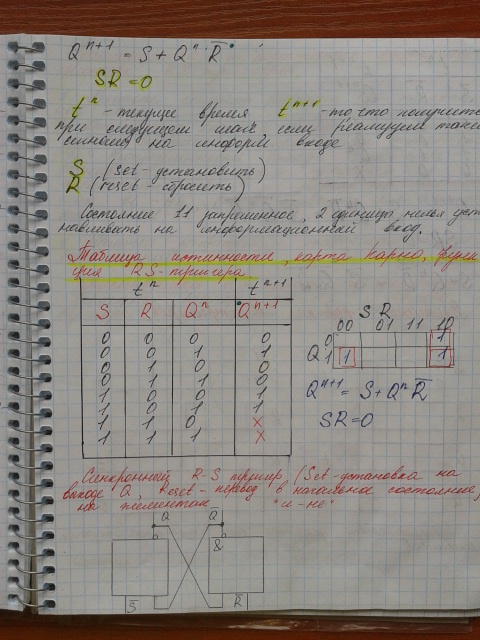 Qⁿ⁺¹ = S + Qⁿ·R̅
SR = 0
tⁿ - текущее время tⁿ⁺¹ - то что получится
при следующем шаге, если реализуем такой
на информ входе
S (set - установить)
R (reset сбросить)
Состояние 11 запрещенное, 2 единицы нельзя уст
навливать на информационный вход.
Таблица истинности, карта Карно, функ
ция RS-триггера
tⁿ tⁿ⁺¹
S R Qⁿ Qⁿ⁺¹
0 0 0 0
0 0 1 1
0 1 0 0
0 1 1 0
1 0 0 1
1 0 1 1
1 1 0 x
1 1 1 x
S R
00 01 11 10
0 1
Q 1 1 1
Qⁿ⁺¹ = S + QⁿR̅
SR = 0
Синхронный R-S триггер, (Set-установка на
выходе Q, Reset - перевод в начальное состояние,
на элементах "и-не"
Q Q̅
&
S̅ R̅